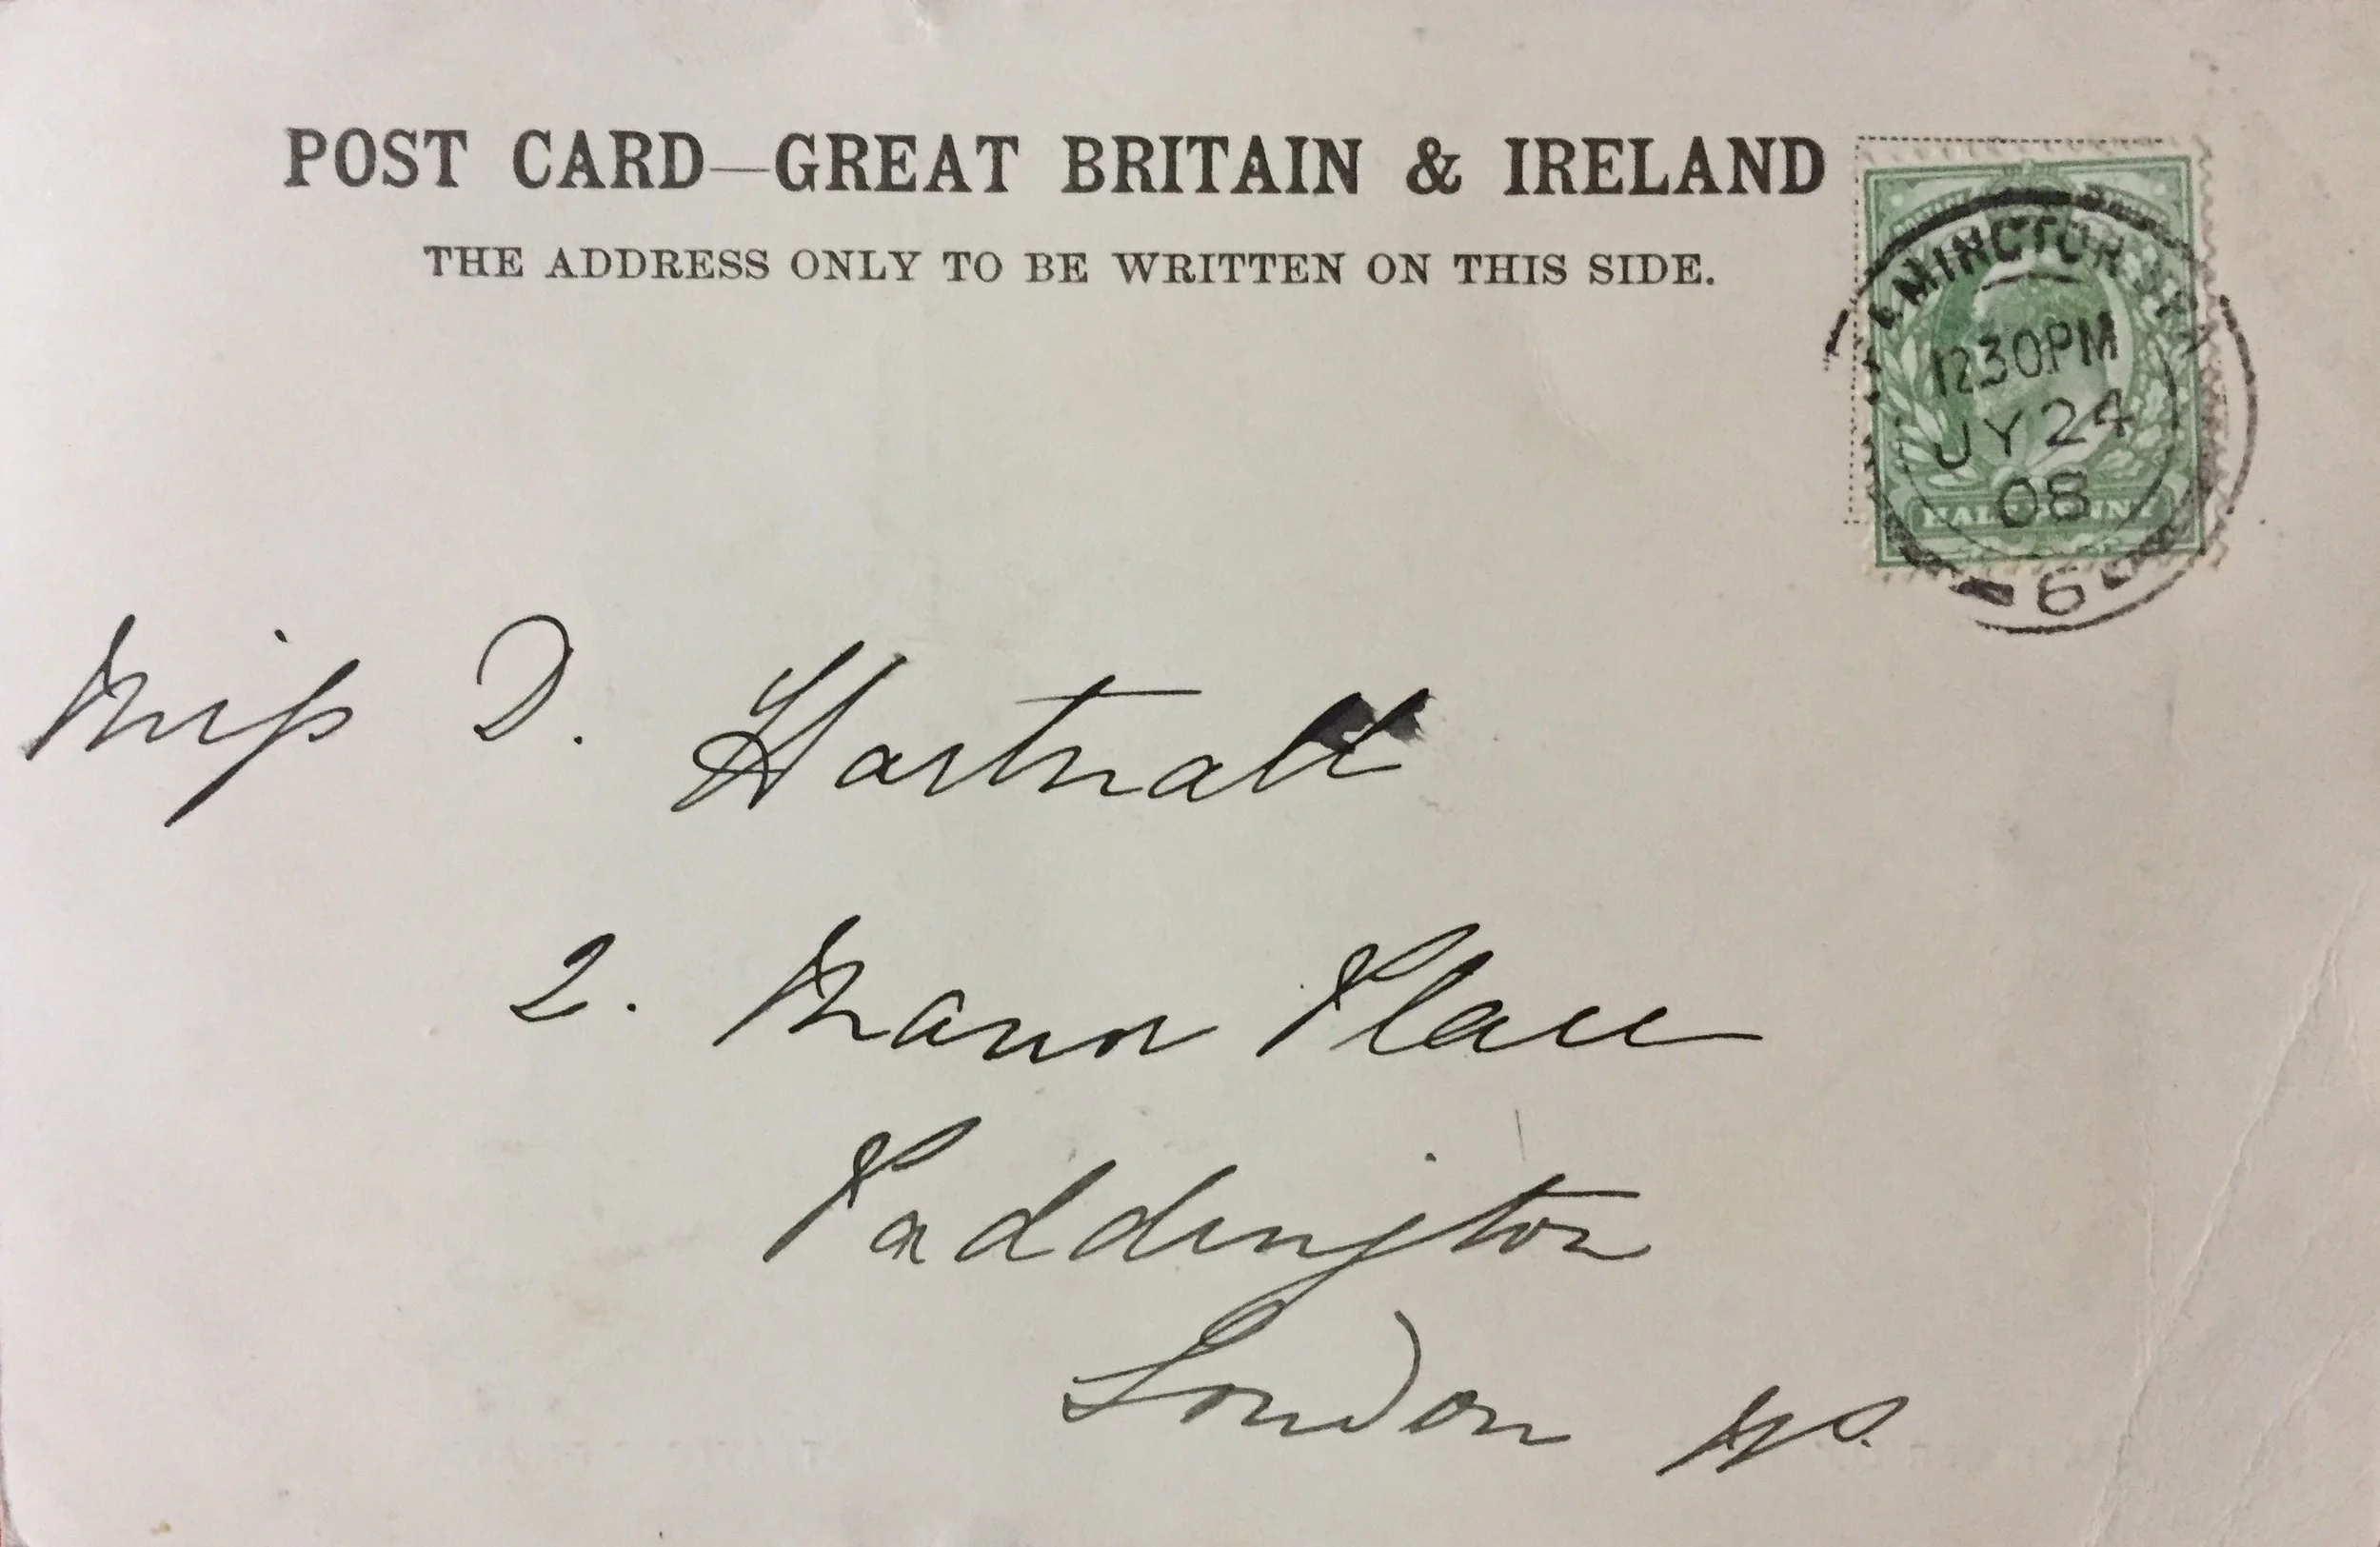 POST CARD—GREAT BRITAIN & IRELAND
THE ADDRESS ONLY TO BE WRITTEN ON THIS SIDE.
12 30 PM
JY 24
08
HALFPENNY
6
Miss D. Hartnall
2. Manor Place
Paddington
London W.